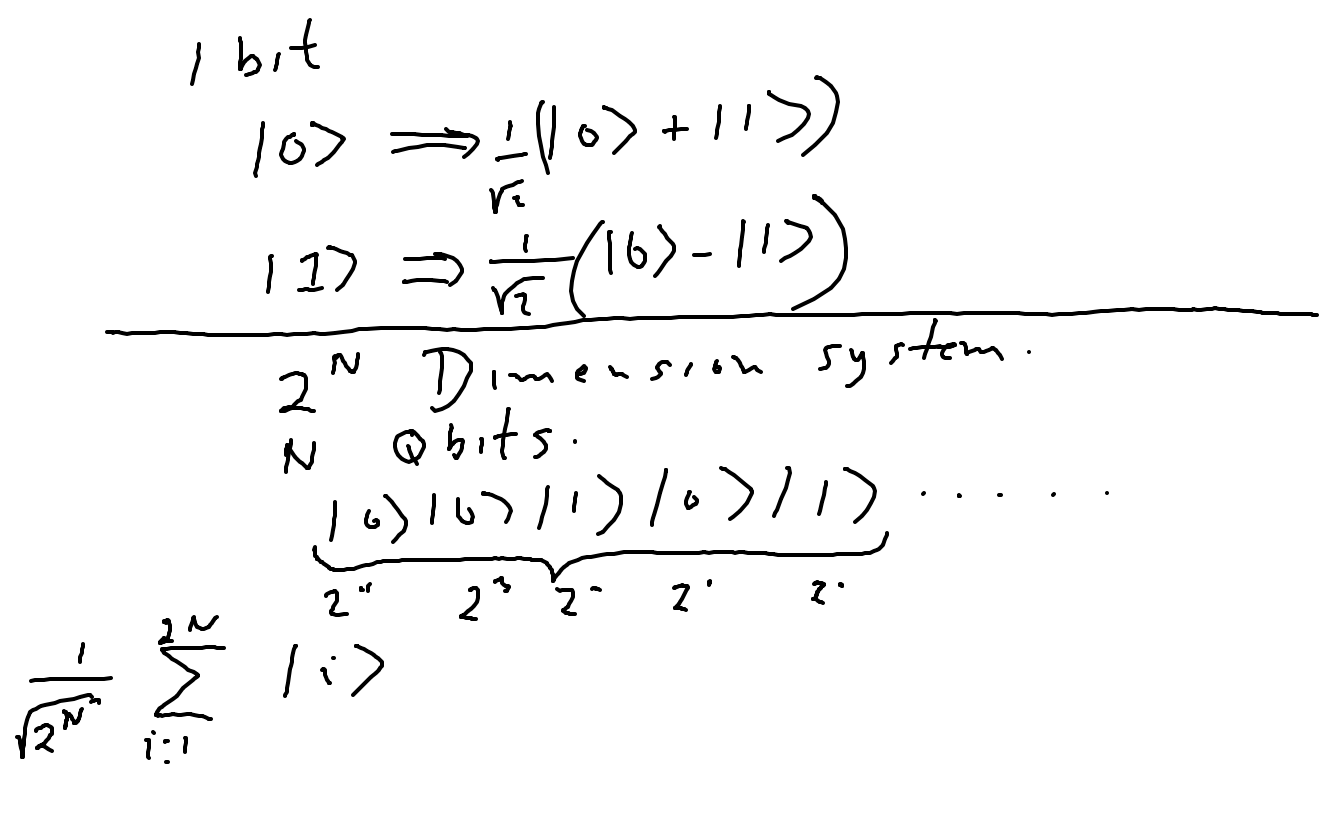 1 bit
|0> ⟹ 1/√2 (|0> + |1>)
|1> ⟹ 1/√2 (|0> - |1>)
2^N Dimension system.
N Qbits.
|0>|0>|1>|0>|1> . . . . . .
2^4 2^3 2 2^1 2
1/√(2^N) ∑_{i=1}^{2^N} |i>